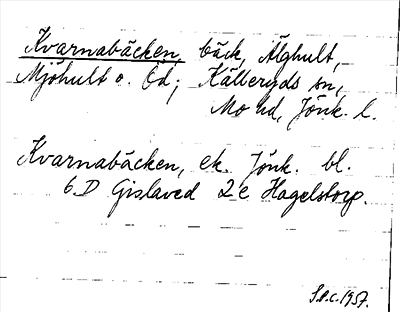 Kvarnabäcken, bäck, Älghult,
Mjöhult o. Öd; Källeryds sn,
Mo hd, Jönk. l.
Kvarnabäcken, ek. Jönk. bl.
6D Gislaved 2e Hagelstorp.
S.P.C. 1957.